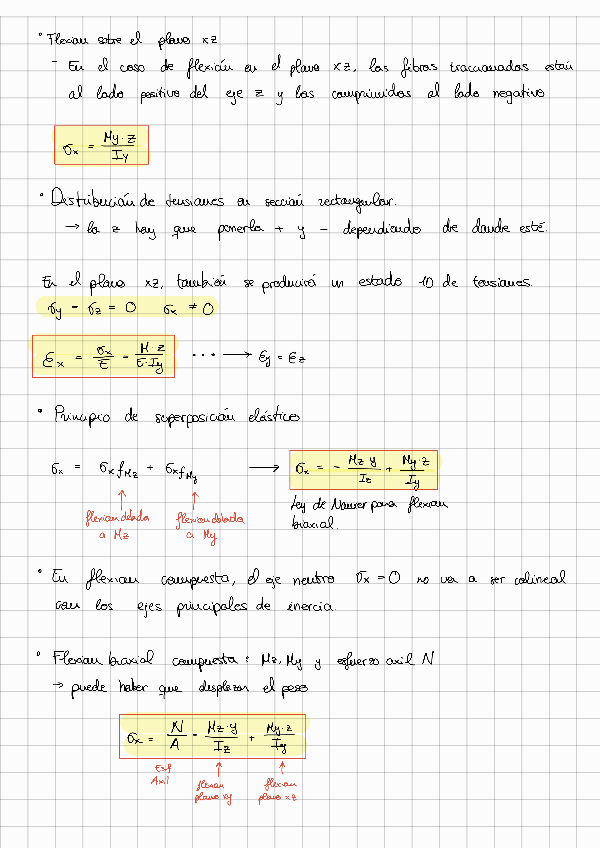 ° Flexión sobre el plano xz
- En el caso de flexión en el plano xz, las fibras traccionadas están
al lado positivo del eje z y las comprimidas al lado negativo
σx = My · z / Iy
° Distribución de tensiones en sección rectangular.
→ la z hay que ponerla + y - dependiendo de donde esté.
En el plano xz, también se producirá un estado 1D de tensiones.
σy = σz = 0 σx ≠ 0
Ex = σx / E = M · z / E · Iy ... → Ey = Ez
° Principio de superposición elástico
σx = σx fMz + σx fMy → σx = - Mz y / Iz + My · z / Iy
flexión debida a Mz
flexión debida a My
Ley de Navier para flexión
biaxial.
° En flexión compuesta, el eje neutro σx = 0 no va a ser colineal
con los ejes principales de inercia.
° Flexión biaxial compuesta: Mz, My y esfuerzo axil N
→ puede haber que desplazar el peso
σx = N / A - Mz · y / Iz + My · z / Iy
Esf Axil
flexión plano xy
flexión plano xz